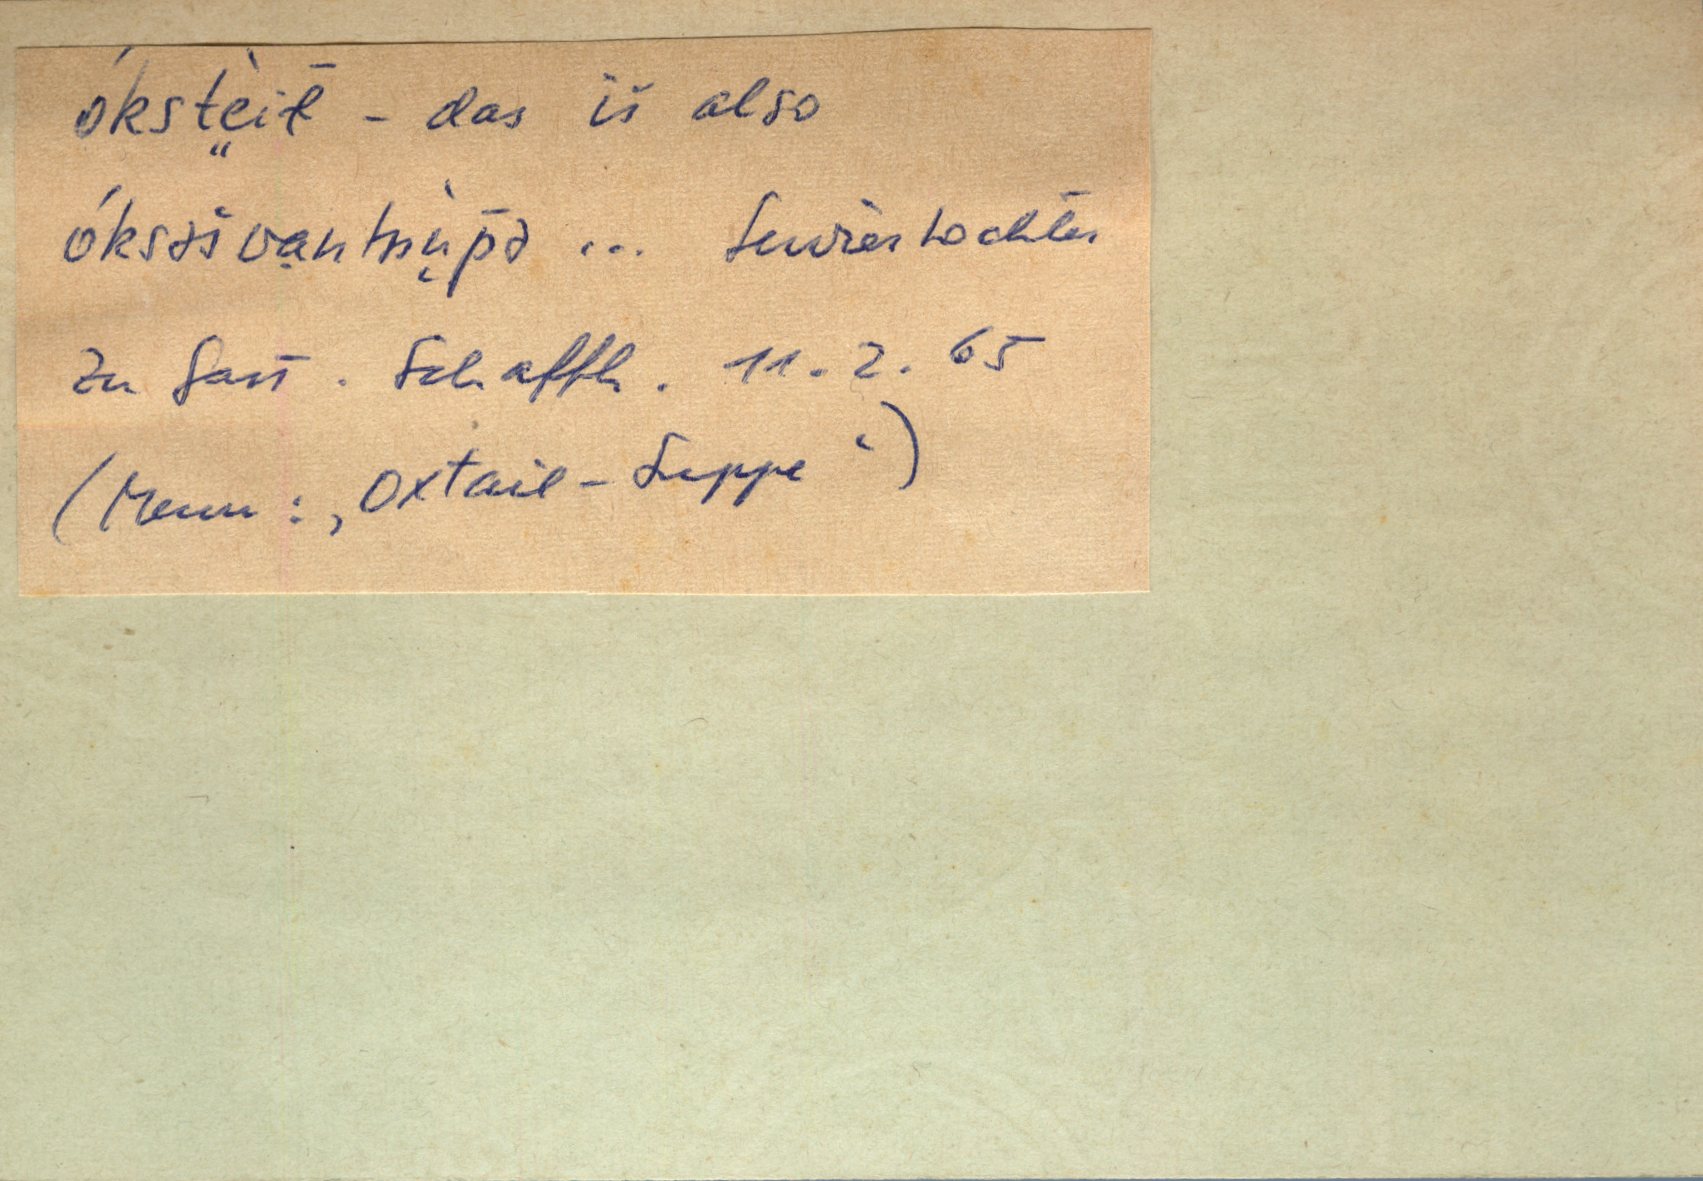 ókstèil̄ - das iš also
óksəšvantsùp̄ə ... Serviertochter
zu Gast. Schaffh. 11.2.65
(Menu: "Oxtail-Suppe")